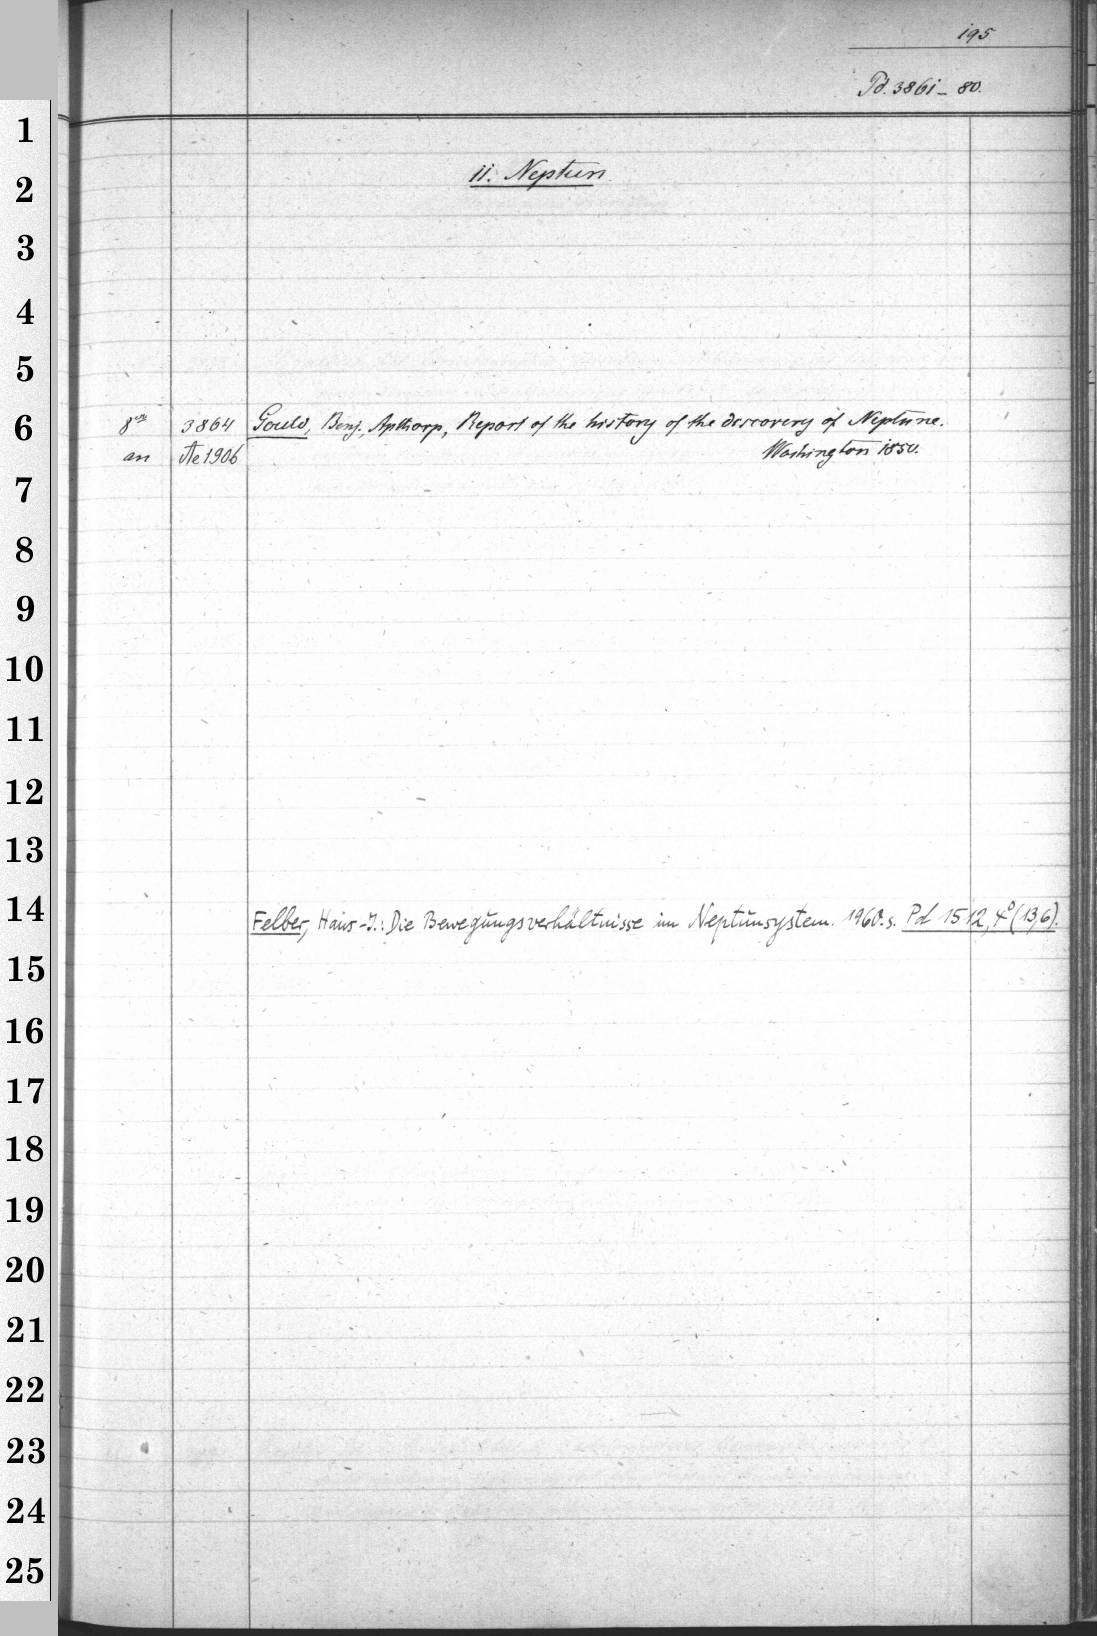 195
Pd. 3861–80.
1
11. Neptun
2
3
4
5
6 8vo 3864 Gould, Benj. Apthorp, Report of the history of the discovery of Neptune.
an Ae 1906 Washington 1850.
7
8
9
10
11
12
13
14 Felber, Hans-J.: Die Bewegungsverhältnisse im Neptunsystem. 1960. s. Pd 1512, 4° (13,6).
15
16
17
18
19
20
21
22
23
24
25